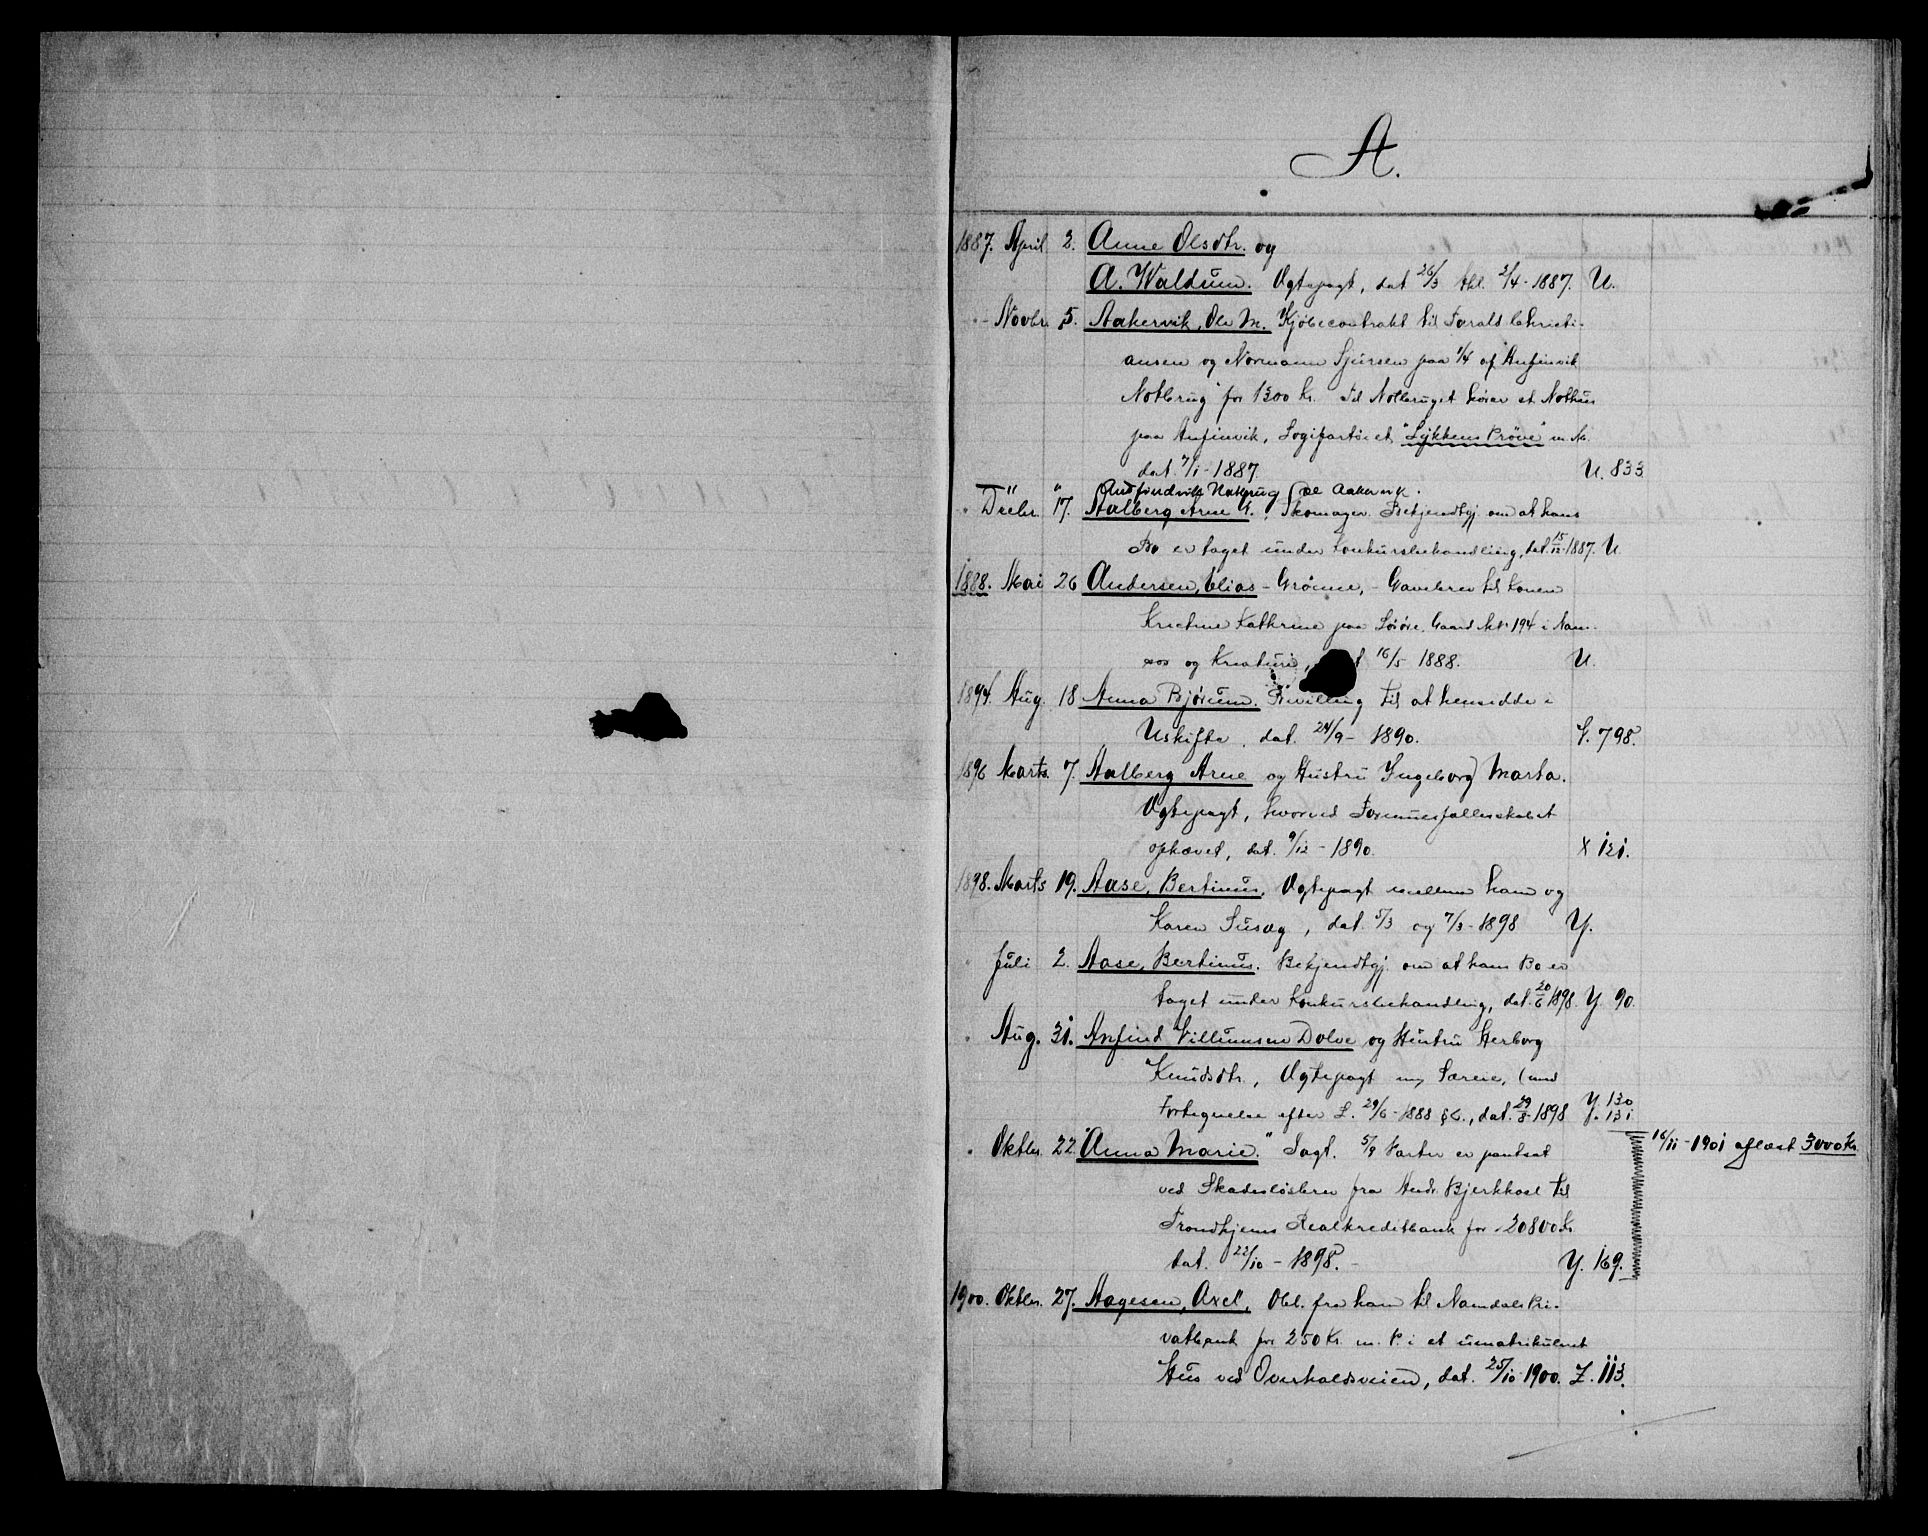 A.
1887. April 2. Anne Olsdtr. og
A. Waldum. Ægtepagt, dat 26/3 thl. 2/4 - 1887. U.
" Novbr. 5. Aakervik, Ole M. Kjøbecontrakt til Harald Christi-
ansen og Normann Sjursen paa 1/4 af Anfinvik
Notbrug for 1300 kr. Til Notbruget hører et Nothus
paa Anfinvik, Logifartøiet "Lykkens Prøve" m. M.
dat. 7/1 - 1887. U. 833
" " Andfindvik Notbrug se Aakervik.
" Dcebr. 17. Aalberg Arne E., Skomager. Bekjendtgj. om at hans
Bo er taget under Konkursbehandling, dat. 15/12 - 1887. U
1888. Mai 26 Andersen, Elias - Grønne, - Gavebrev til Konen
Kristine Kathrine paa Gaard No 194 i Nam-
sos og Kreature, 16/5 1888. U.
1894. Aug. 18 Anna Bjørum. Bevilling til at hensidde i
Uskifte, dat. 24/9 - 1890. S. 798.
1896 Marts. 7. Aalberg Arne og Hustru Ingeborg Marta.
Ægtepagt, hvorved Formuesfællesskabet
ophævet, dat. 9/12 - 1890. X 121.
1898. Marts 19. Aase, Bertinus, Ægtepagt mellem ham og
Karen Susag, dat. 5/3 og 7/3 - 1898 Y.
" Juli 2. Aase, Bertinus. Bekjendtgj. om at hans Bo er
taget under Konkursbehandling, dat. 20/6 1898. Y. 90.
" Aug. 31. Anfind Villumsen Dolve og Hustru Herborg
Knudsdtr., Ægtepagt og Særeie, (med
Fortegnelse efter L. 29/6 - 1888 § 6., dat. 29/8 - 1898 Y. 130 Y. 131
" Oktbr. 22. "Anna Marie." Jagt. 5/9 Parter er pantsat
16/11 - 1901 aflæst 3000 Kr.
ved Skadesløsbrev fra Andr. Bjerkhoel til
Trondhjems Realkreditbank for 20800 Kr
dat. 22/10 - 1898. - Y. 169.
1900. Oktbr. 27. Aagesen, Axel, Obl. fra ham til Namdals Pri-
vatbank for 250 Kr. m. P. i et umatrikuleret
Hus ved Overhaldsveien, dat. 25/10 1900. Z. 113.